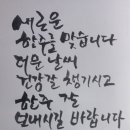 새로운
한주를 맞습니다
더운 날씨
건강 잘 챙기시고
한주 잘
보내시길 바랍니다